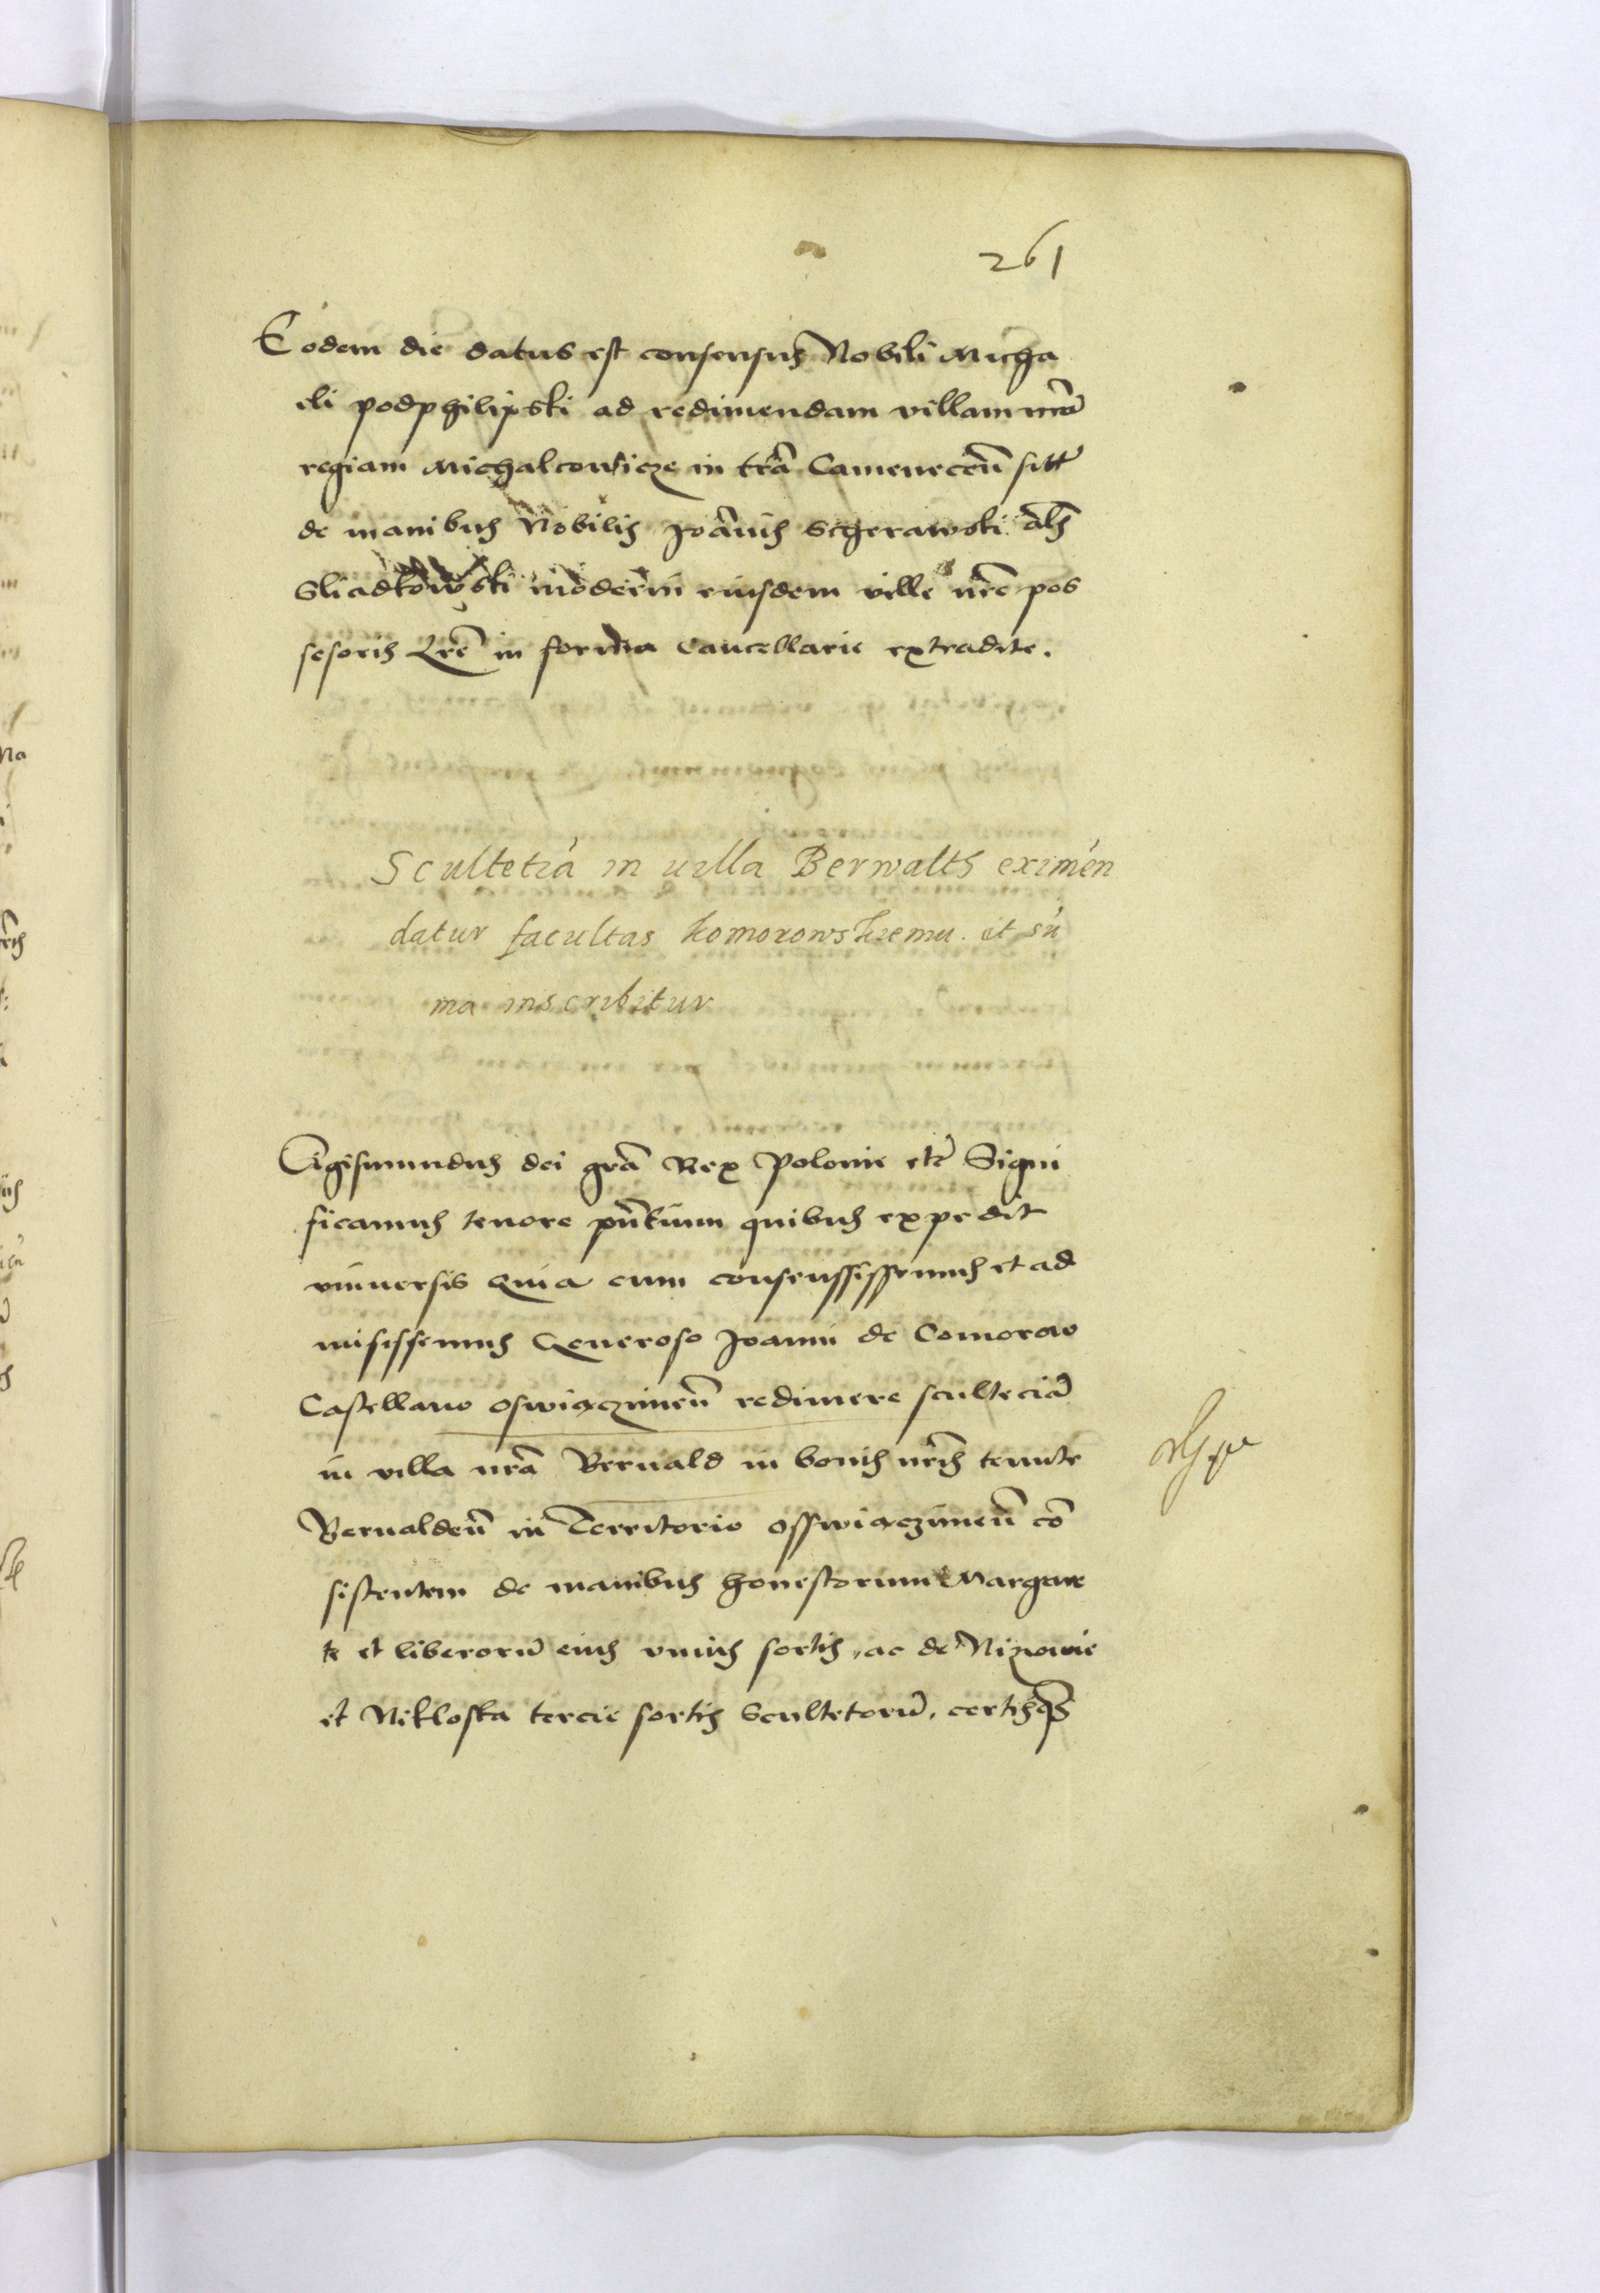 261
Eodem die datus est consensus Nobili Micha
eli podphilipski ad redimendam villam nrã
regiam Michalcowicze in trã Camenecen̄ sitt̃
de manibus Nobilis Joãnis Scherawski als̃
Sliadkowski moderni eiusdem ville nrẽ pos
sesoris Lrẽ in forma Cancellarie extradite.
Scultetiã in uilla Berwalth eximen̄
datur facultas komorowskiemu. et sũ
ma inscribitur
Sigismundus dei grã Rex Polonie etc̃ Signi
ficamus tenore pñtium quibus expedit
vniuersis Quia cum consenssissemus et ad
misissemus Generoso Joanni de Comorow
Castellano oswiączimen̄ redimere sculteciã
in villa nrã Beruald in bonis nrĩs tenute
Berualden̄ in Territorio osswiączimen̄ cõ
sistentem de manibus honestorum Margare
te et liberorũ eius vnius sortis, ac de Nizowie
et Nikloska tercie sortis Scultetorũ, certisqꝫ